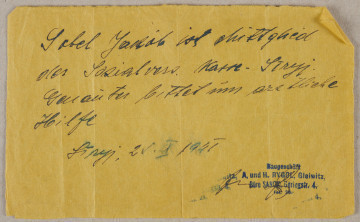 Sobel Jakób ist Mitglied
der Sozialvers. Kasse - Stryj.
Genannter bittet um ärztliche
Hilfe
Stryj, 25. X 1941
Baugeschäft
A. und H. RYGOL, Gleiwitz,
Büro